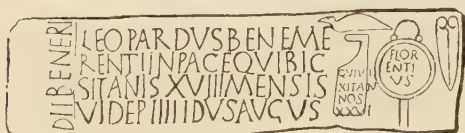 DIIBENERI
LEOPARDVSBENEME
RENTIINPACEQVIBIC
SITANISXVIIIMENSIS
VIDEPIIIIIDVSAVGVS
QVIVI
XITAN
NOS
XXVI
FLOR
ENTI
VS